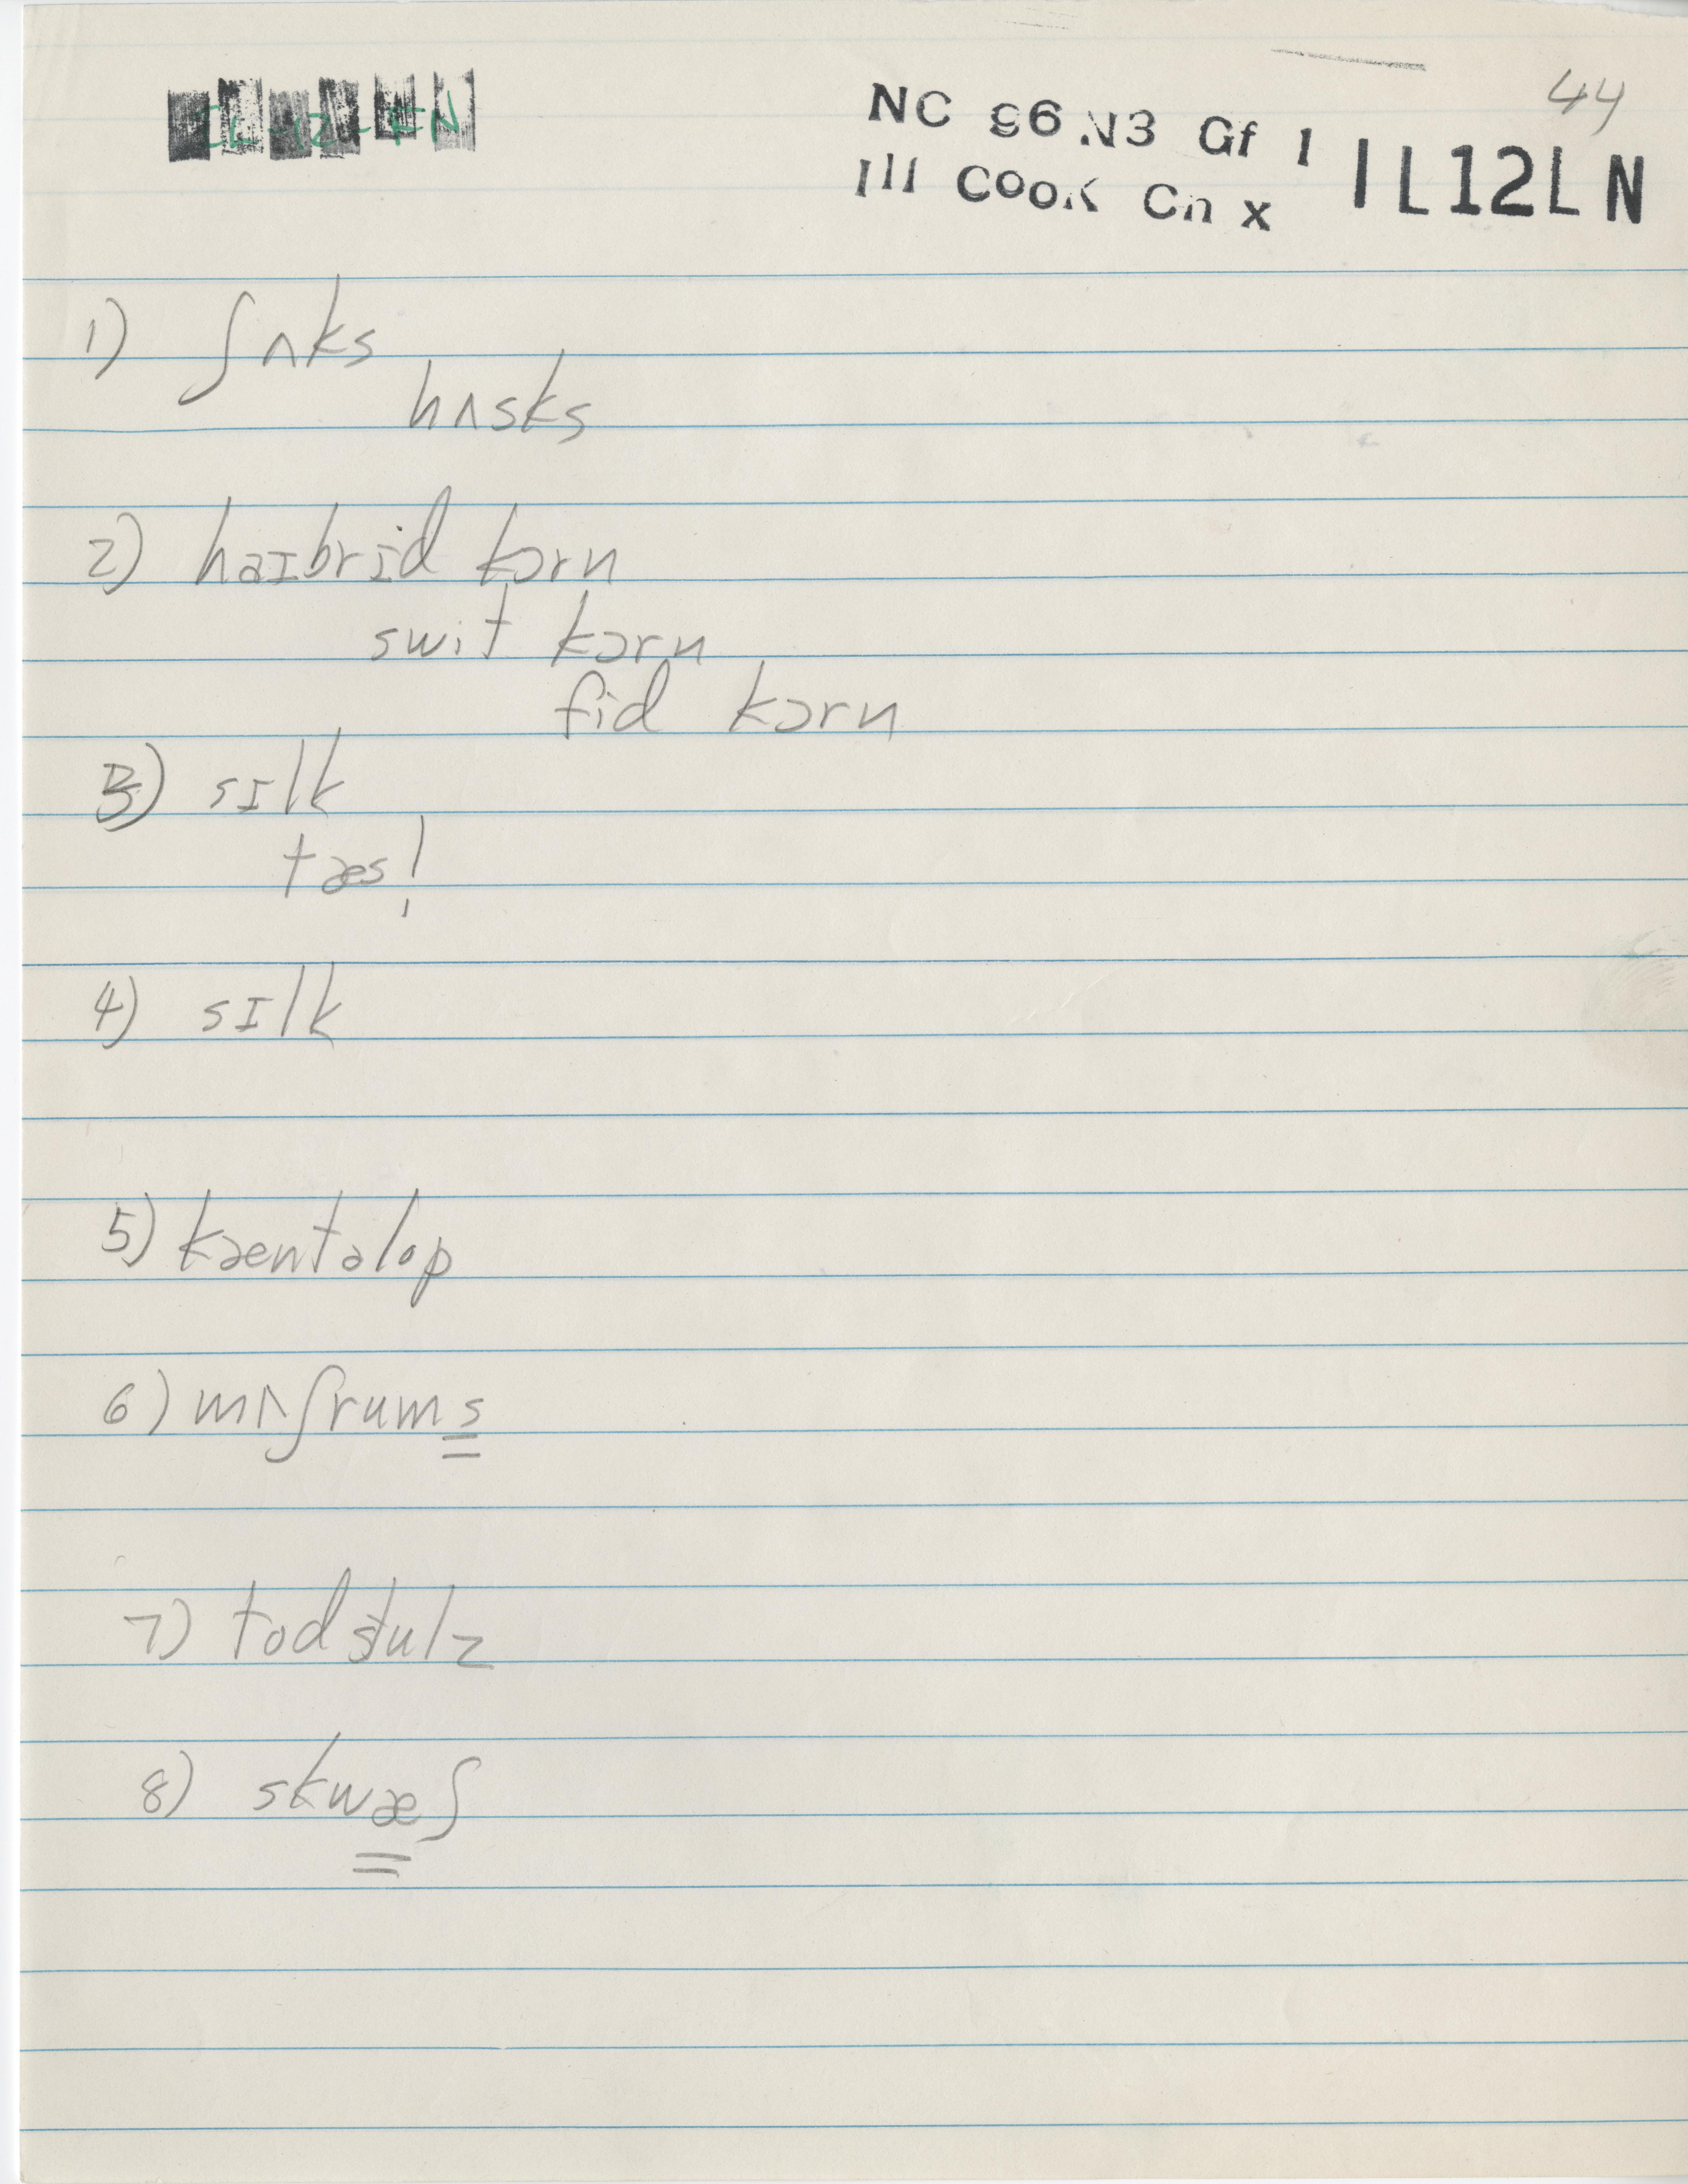 44
NC 96 N3 Gf 1
Ill Cook Cn x
IL12LN
1) ʃʌks
hʌsks
2) haɪbrɪd kɔrn
swit kɔrn
fid kɔrn
3) sɪlk
tæsl̩
4) sɪlk
5) kæntəlop
6) mʌʃrums
7) todstulz
8) skwæʃ